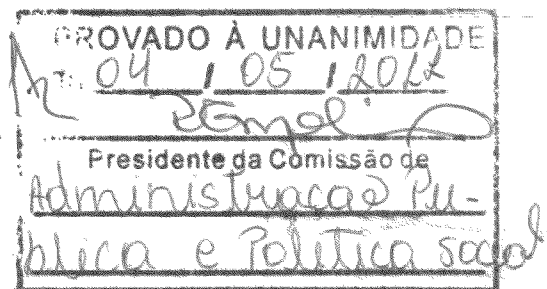 PROVADO À UNANIMIDADE
04 / 05 / 2022
Presidente da Comissão de
Administração Pú-
blica e Política Social